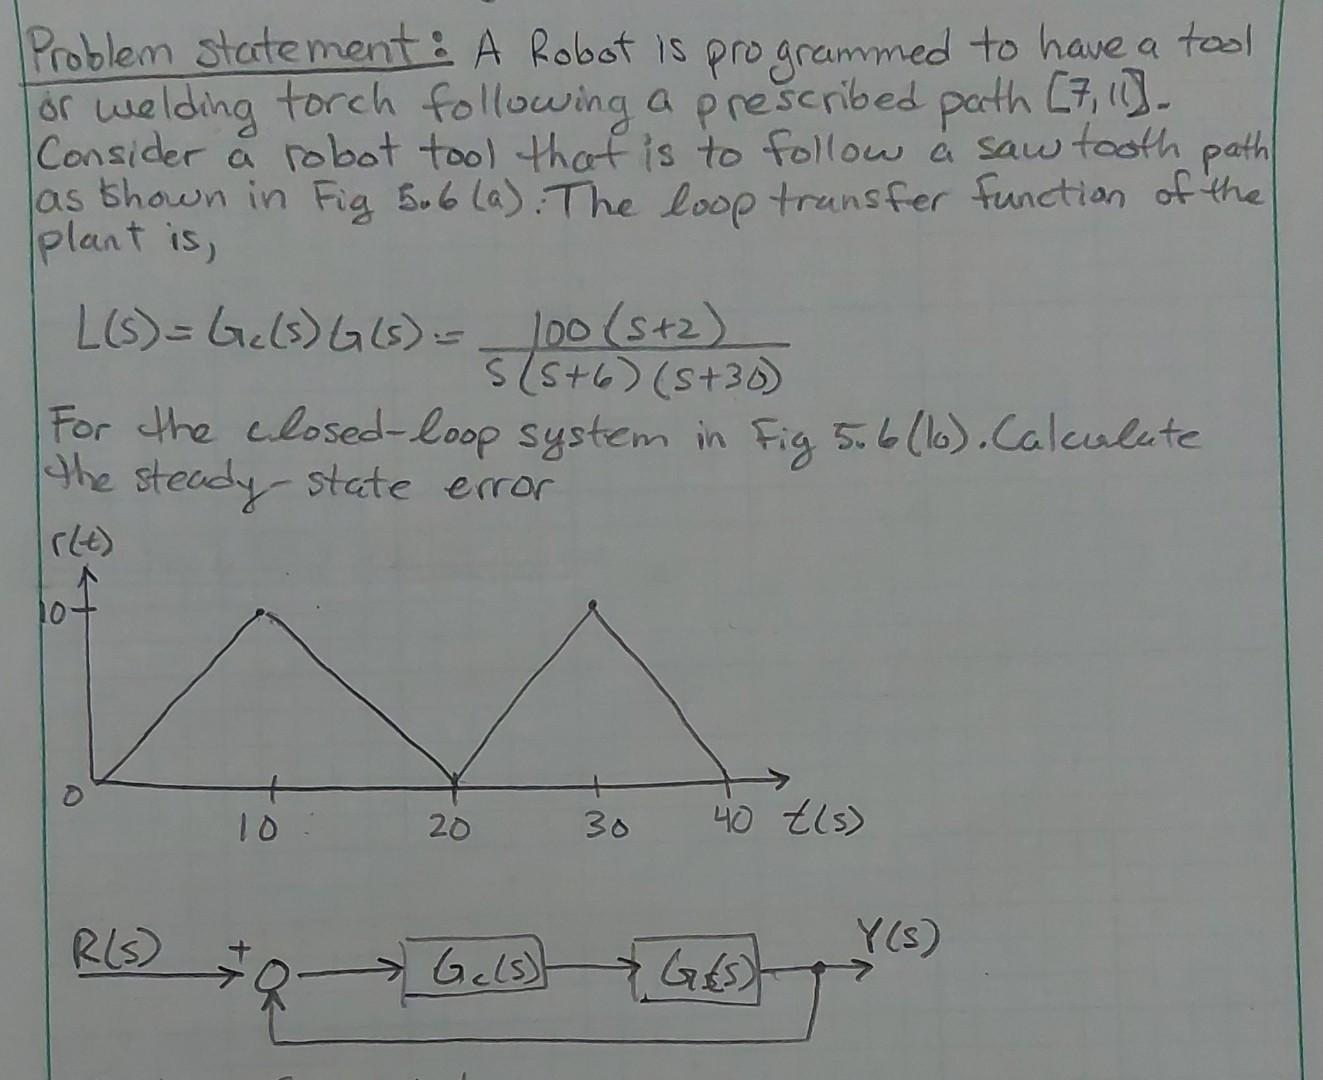 Problem statement: A Robot is programmed to have a tool
or welding torch following a prescribed path [7,11].
Consider a robot tool that is to follow a saw tooth path
as shown in Fig 5.6(a). The loop transfer function of the
plant is,
L(s) = Gc(s) G(s) = 100(s+2)
s(s+6)(s+30)
For the closed-loop system in Fig 5.6(b). Calculate
the steady-state error
r(t)
10
0
10 20 30 40 t(s)
R(s) + Gc(s) G(s) Y(s)